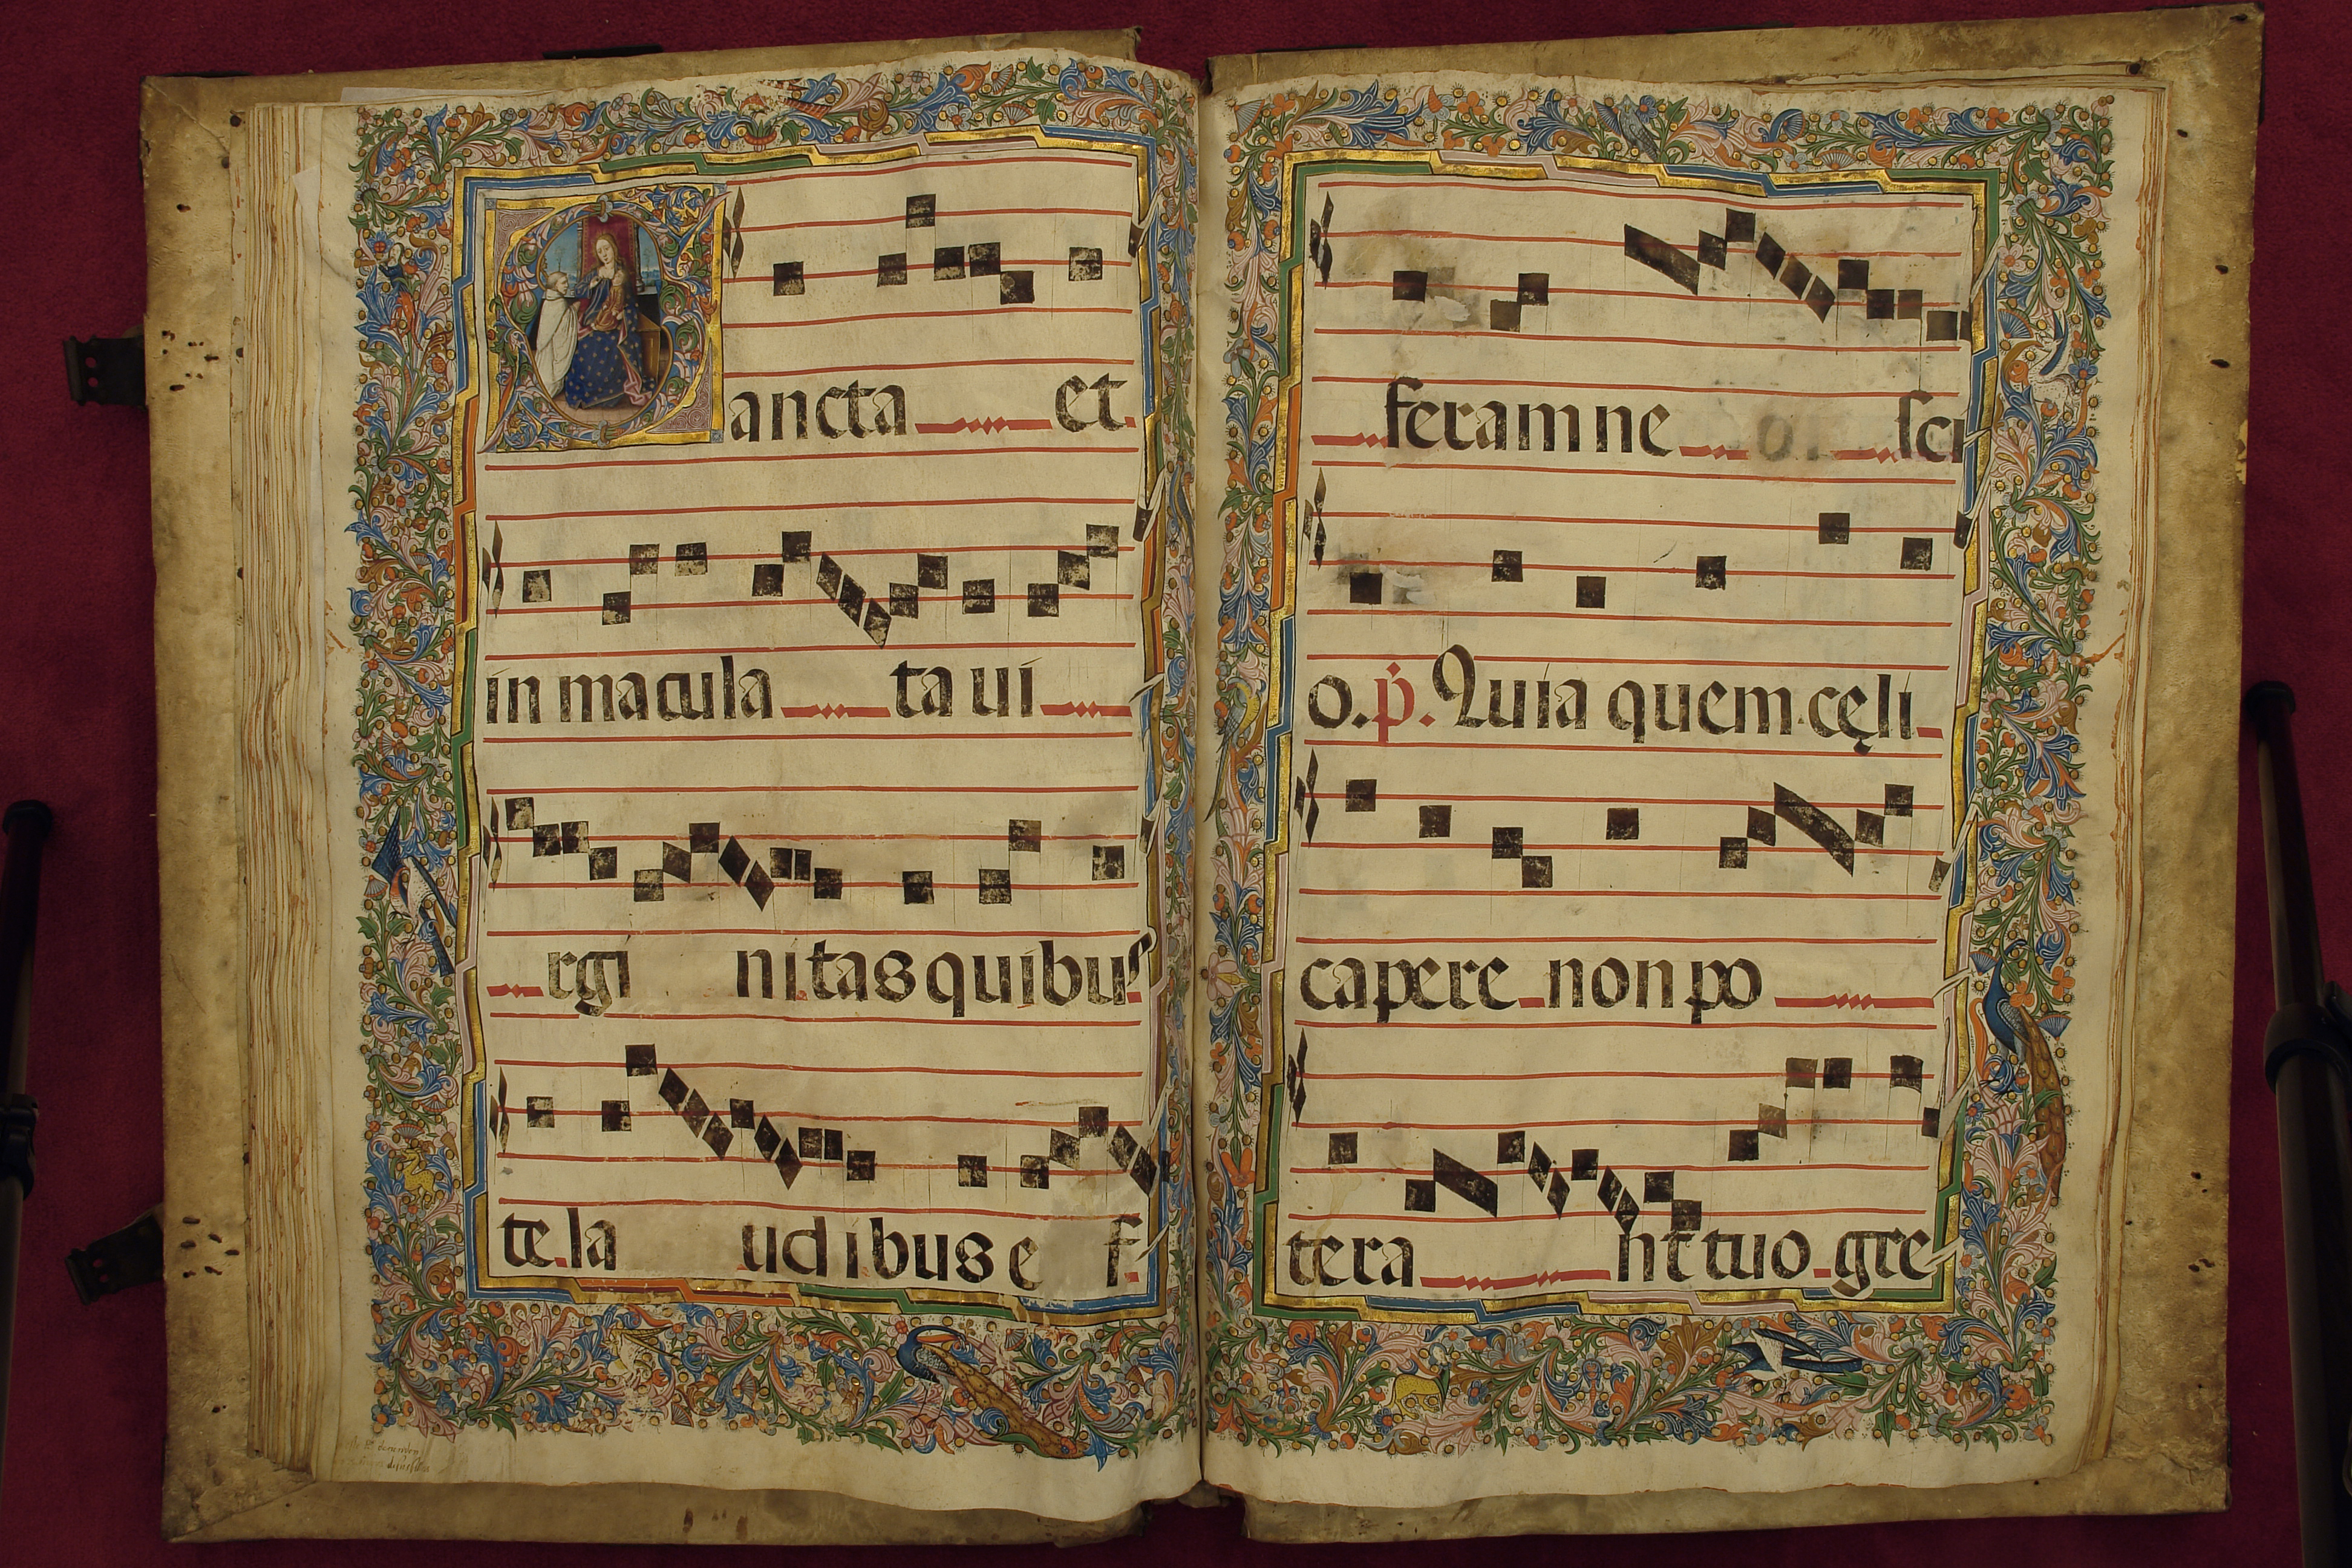 Sancta et
in macula ta ui
rgi nitas quibus
te la udibus e f
feram ne o. sci
o. p. Quia quem cęli
capere non po
tera nt tuo gre